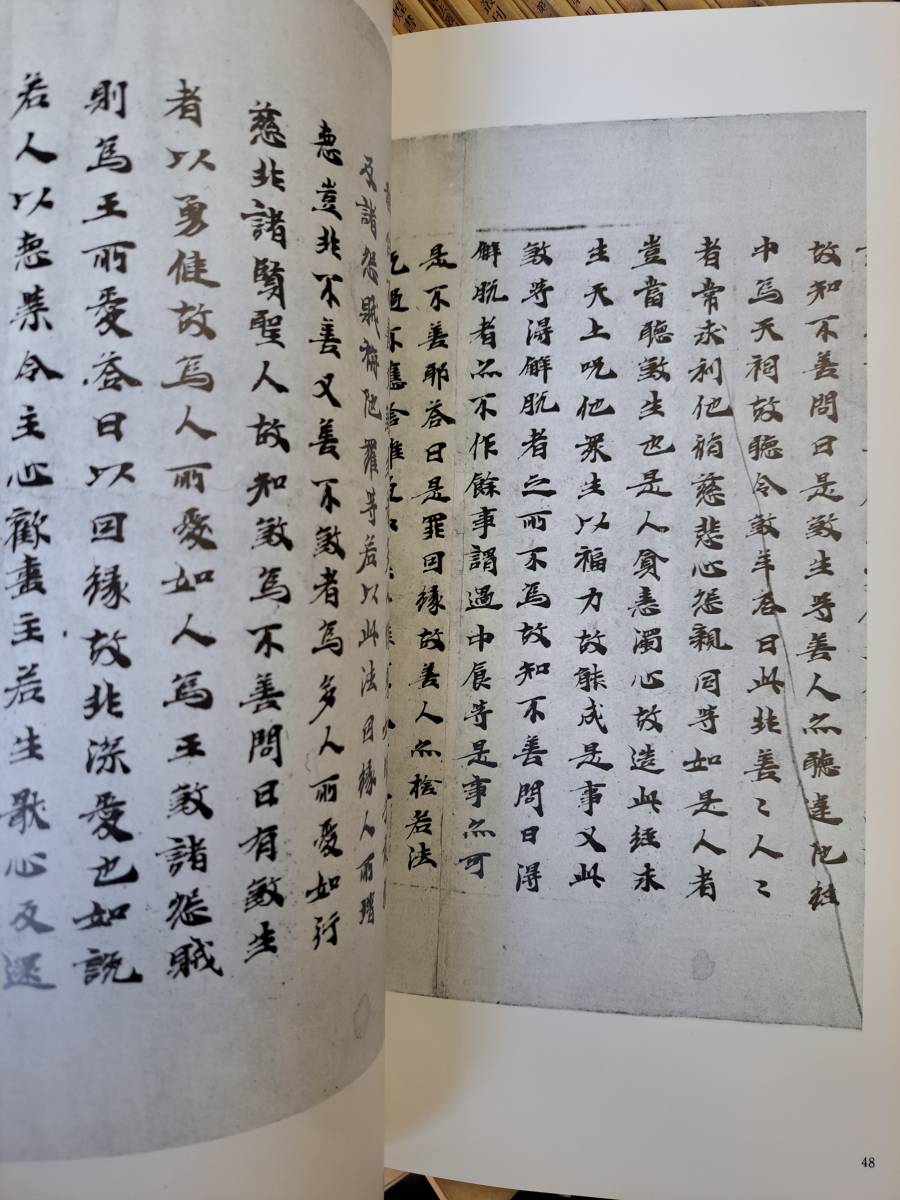 故知不善問曰是煞生等善人亦聽違陀経
中為天祠故聽令煞羊荅曰此非善〻人〻
者常求利他脩慈悲心怨親同等如是人者
豈當聽煞生也是人貪恚濁心故造此経求
生天上呪他衆生以福力故能成是事又此
煞等得解脫者之所不為故知不善問曰得
解脫者亦不作餘事謂過中食等是事亦可
是不善耶荅曰是罪因縁故善人亦捨若法
過不應捨離
及諸怨賊旃陀羅等若以此法因縁人所瞋
恚豈非不善又善不煞者為多人所愛如行
慈非諸賢聖人故知煞為不善問曰有煞生
者以勇健故為人所愛如人為王煞諸怨賊
則為王所愛荅曰以因縁故非深愛也如說
若人以惡業令主心歡喜主若生猒心反還
48